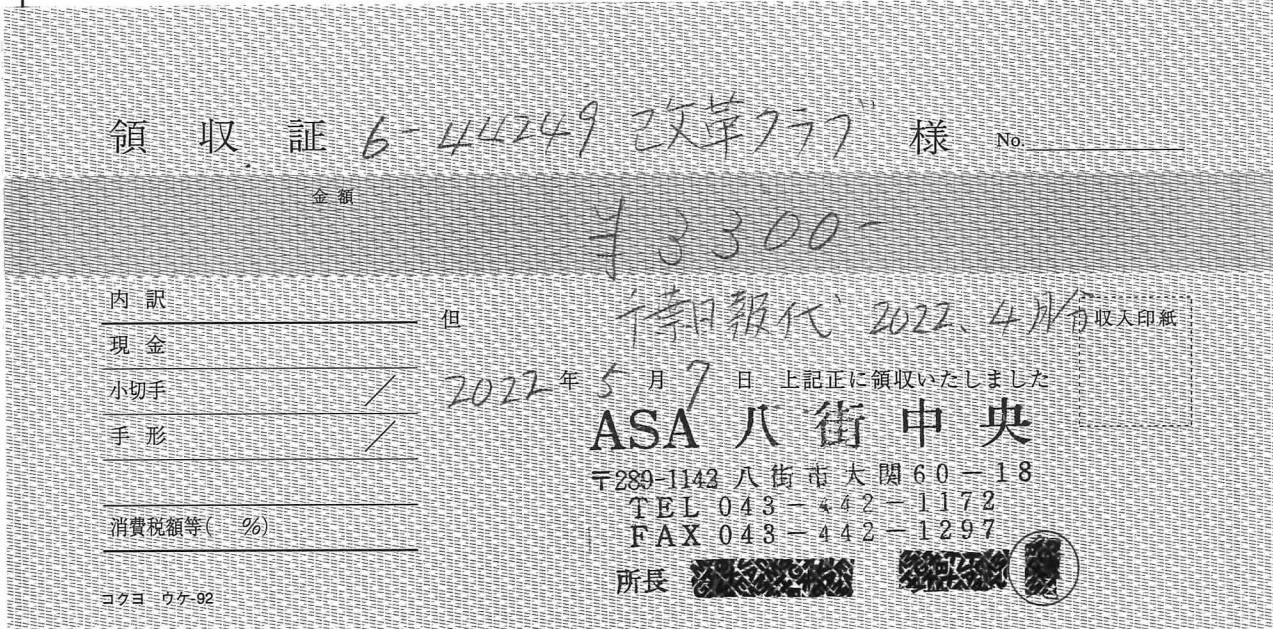 領収証 6-44249 改革クラブ 様 No.
金額
¥3300-
内訳
但 千葉日報代 2022.4月分
収入印紙
現金
小切手
2022年5月7日 上記正に領収いたしました
手形
ASA 八街中央
〒289-1143 八街市大関60-18
TEL 043-442-1172
消費税額等( %)
FAX 043-442-1297
所長
コクヨ ウケ-92